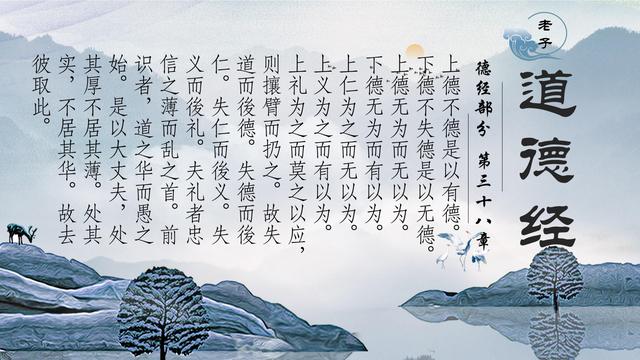 老子
道德经
德经部分 第三十八章
上德不德是以有德。
下德不失德是以无德。
上德无为而无以为。
下德无为而有以为。
上仁为之而无以为。
上义为之而有以为。
上礼为之而莫之以应，
则攘臂而扔之。故失
道而後德。失德而後
仁。失仁而後义。失
义而後礼。夫礼者忠
信之薄而乱之首。前
识者，道之华而愚之
始。是以大丈夫，处
其厚不居其薄。处其
实，不居其华。故去
彼取此。